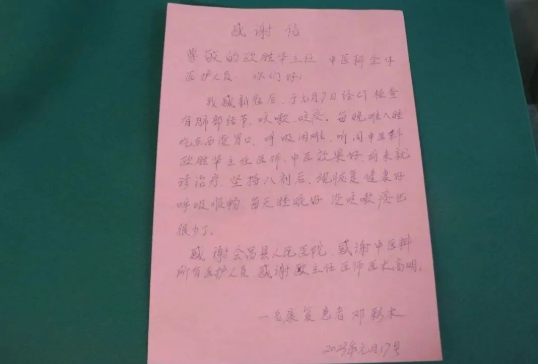 感谢信
尊敬的欧胜华主任 中医科全体
医护人员 你们好。
我感新冠后,于元月7日经CT检查
有肺部结节,咳嗽,咳痰。每晚难入睡
呼吸困难,听闻中医科
欧胜华主任医师,中医效果好前来就
诊治疗,坚持八剂后,现恢复健康好
呼吸顺畅,每天睡眠好 没咳嗽 痰也
很少了。
感谢会昌县人民医院,感谢中医科
所有医护人员,感谢欧主任医师医术高明。
一名康复患者 邓
2023年元月17号